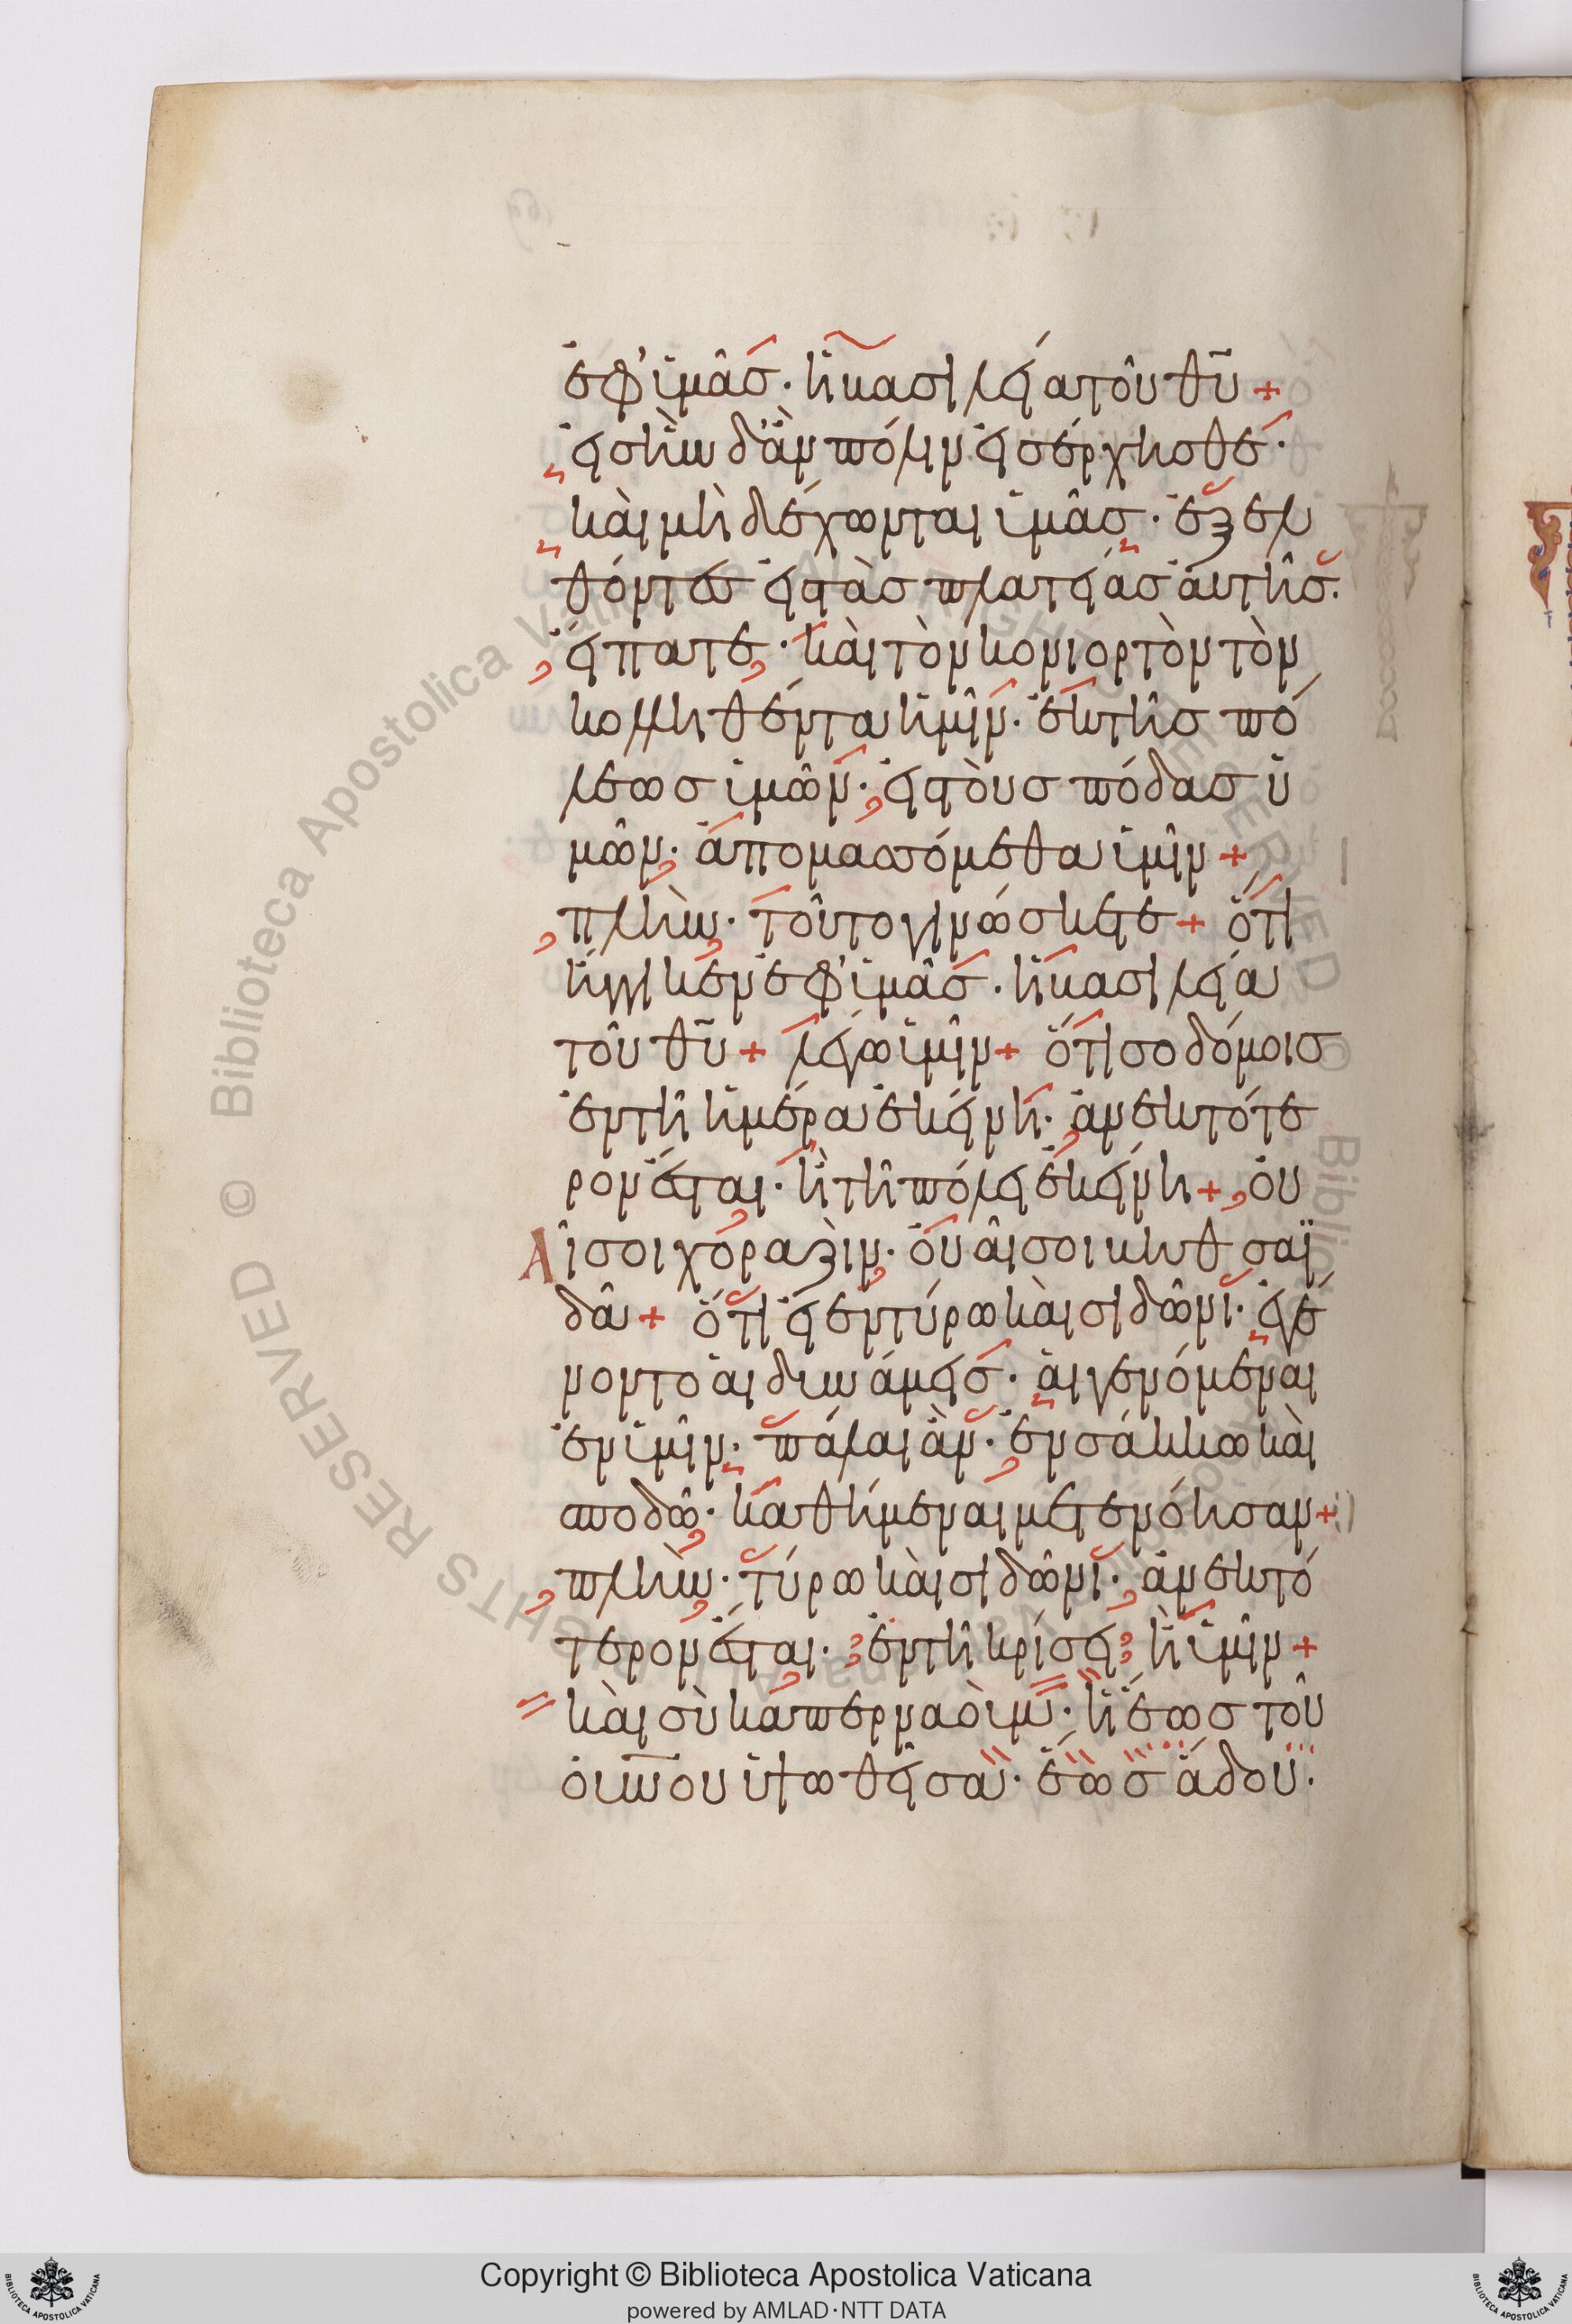 ἐφ' ἱμᾶς· ἡ βασιλεία τοῦ θῦ +
εἰς ἣν δ' ἂν πόλιν εἰσέρχησθε·
καὶ μὴ δέχωνται ἱμᾶς· ἐξελ
θόντες εἰς τὰς πλατείας αὐτῆς·
εἴπατε· καὶ τὸν κονιορτὸν τὸν
κολληθέντα ἡμῖν· ἐκ τῆς πό
λεως ἱμῶν· εἰς τοὺς πόδας ὑ
μῶν· ἀπομασσόμεθα ἱμῖν +
πλὴν· τοῦτο γινώσκετε + ὅτι
ἤγγικεν ἐφ' ἱμᾶς· ἡ βασιλεία
τοῦ θῦ + λέγω ἱμῖν + ὅτι σοδόμοις
ἐν τῆ ἡμέρα ἐκείνη· ἀνεκτότε
ρον ἔσται· ἢ τῆ πόλει ἐκείνη + οὐ
αῖ σοι χοραζὶν· οὐαῖ σοι βηθσαϊ
δᾶ + ὅτι εἰ ἐν τύρω καὶ σιδῶνι· ἐγέ
νοντο αἱ δυνάμεις· αἱ γενόμεναι
ἐν ἱμῖν· πάλαι ἂν· ἐν σάκκω καὶ
σποδῶ· καθήμεναι μετενόησαν +
πλὴν· τύρω καὶ σιδῶνι· ἀνεκτό
τερον ἔσται· ἐν τῆ κρίσει· ἢ ἱμῖν +
καὶ σὺ καπερναοὶμ· ἡ ἕως τοῦ
οὐνου ὑψωθεῖσα· ἕως ἅδου·
Copyright © Biblioteca Apostolica Vaticana
powered by AMLAD·NTT DATA